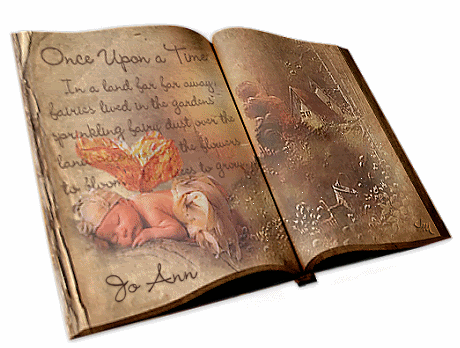 Once Upon a Time
In a land far far away
fairies lived in the gardens
sprinkling fairy dust over the
land the flowers
to bloom to grow
Jo Ann